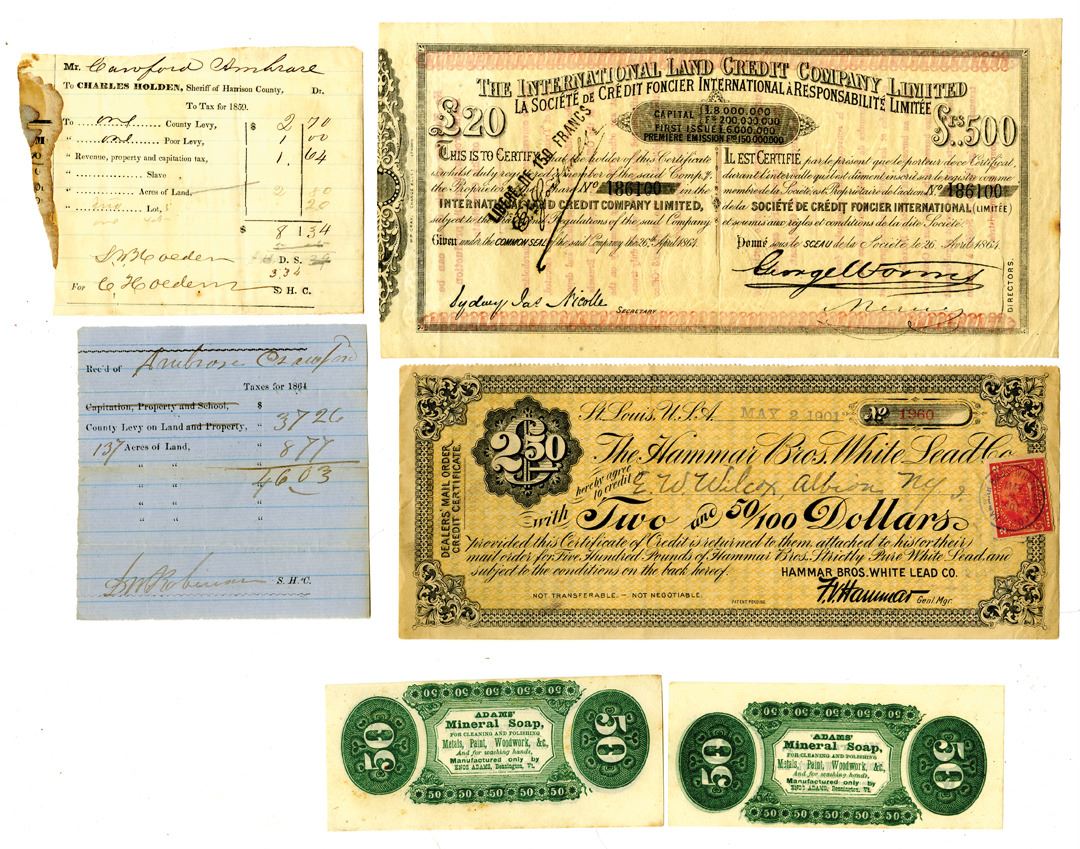 Mr. Cawford Ambrose
To CHARLES HOLDEN, Sheriff of Harrison County, Dr.
To Tax for 1859.
To one County Levy, $ 2 70
" one Poor Levy, 1 00
" Revenue, property and capitation tax, 1. 64
" Slave
" Acres of Land, 2 80
" Lot, 20
$ 8 134
D. S.
3 34
For C Hoedem S. H. C.
Rec'd of Ambrose Crawford
Taxes for 1864
Capitation, Property and School, $
County Levy on Land and Property, " 3726
137 Acres of Land, " 877
" " " 4603
" " "
" " "
" " "
S. H. C.
THE INTERNATIONAL LAND CREDIT COMPANY LIMITED
LA SOCIÉTÉ DE CRÉDIT FONCIER INTERNATIONAL À RESPONSABILITÉ LIMITÉE
£20
CAPITAL £8.000.000
Frs 200,000,000
FIRST ISSUE £6.000.000
PREMIÈRE EMISSION Frs 150.000.000
Frs..500
LIBÉRÉ DE 150 FRANCS
THIS IS TO CERTIFY that the holder of this Certificate
is whilst duly registered a member of the said Compy.
the Proprietor of Share No 186100 in the
INTERNATIONAL LAND CREDIT COMPANY LIMITED,
subject to the Regulations of the said Company
Given under the COMMON SEAL of the said Company the 26th April 1864.
IL EST CERTIFIÉ par le présent que le porteur de ce Certificat,
durant l'intervalle qu'il est dûment inscrit au registre comme
membre de la Société, est Propriétaire de l'action No 186100
de la SOCIÉTÉ DE CRÉDIT FONCIER INTERNATIONAL (LIMITÉE)
et soumis aux règles et conditions de la dite Société.
Donné sous le SCEAU de la Société le 26 Avril 1864.
Sydney Jas Nicolle
SECRETARY
George Worms
DIRECTORS.
St. Louis, U.S.A. MAY 2 1901 No 1960
$2.50
DEALERS' MAIL ORDER
CREDIT CERTIFICATE
The Hammar Bros. White Lead Co.
hereby agree
to credit E W Wilcox Albion NY
with Two and 50/100 Dollars
provided this Certificate of Credit is returned to them attached to his (or their)
mail order for Five Hundred Pounds of Hammar Bros. Strictly Pure White Lead, and
subject to the conditions on the back hereof. HAMMAR BROS. WHITE LEAD CO.
NOT TRANSFERABLE. — NOT NEGOTIABLE. PATENT PENDING
F.V. Hammar Genl. Mgr.
50 50 50 50 50
50
ADAMS'
Mineral Soap,
FOR CLEANING AND POLISHING
Metals, Paint, Woodwork, &c,
And for washing hands,
Manufactured only by
ENOS ADAMS, Bennington, Vt.
50
50 50 50 50 50
50 50 50 50 50
50
ADAMS'
Mineral Soap,
FOR CLEANING AND POLISHING
Metals, Paint, Woodwork, &c,
And for washing hands,
Manufactured only by
ENOS ADAMS, Bennington, Vt.
50
50 50 50 50 50